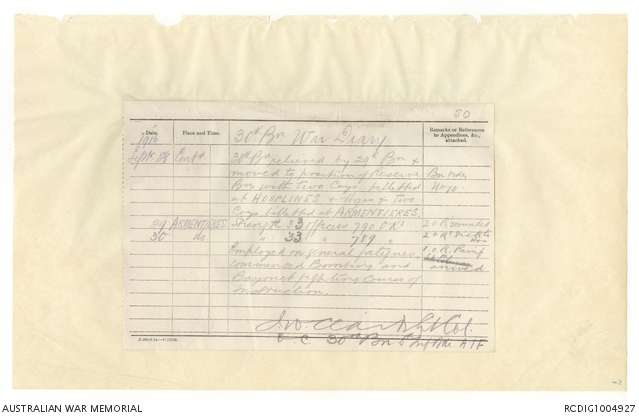 50
Date. Place and Time. Remarks or References
to Appendices, &c.,
attached.
30th Bn War Diary
1916
Sept. 28 Cont'd 30th Bn relieved by 29th Bn &
moved to position of Reserve Bn Order
Bn with two Coys billetted No 10
at HOUPLINES & Hqrs & two
Coys billetted at ARMENTIERES.
29 ARMENTIERES Strength 33 Officers 790 O.R's 2 O.R. wounded
30 do " 33 " 789 "
Employed on general fatigues, 1 O.R.
commenced Bombing and arrived
Bayonet fighting Courses of
instruction.
Lt Col.
O. C. 30th Bn 8th Inf Bde AIF
AUSTRALIAN WAR MEMORIAL
RCDIG1004927